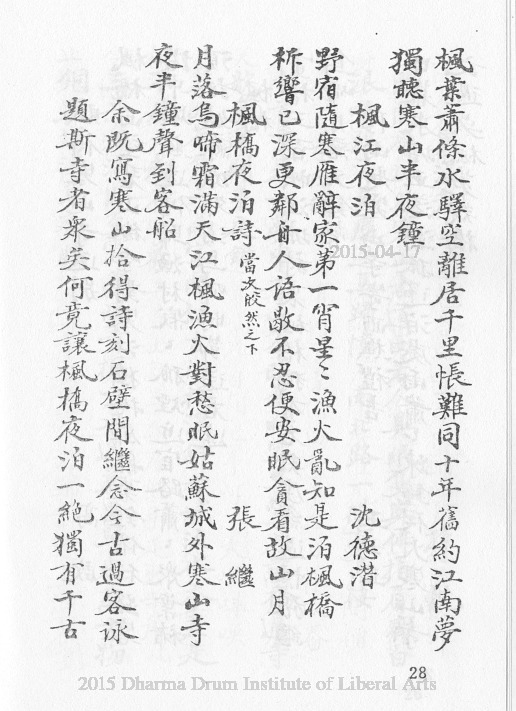 楓葉蕭條水驛空離居千里悵難同十年舊約江南夢
獨聽寒山半夜鐘
楓江夜泊 沈德潛
野宿隨寒雁辭家第一宵星〻漁火亂知是泊楓橋
柝響已深更鄰舟人語歇不忍便安眠貪看故山月
楓橋夜泊詩 當次皎然之下 張繼
月落烏啼霜滿天江楓漁火對愁眠姑蘇城外寒山寺
夜半鐘聲到客船
余既寫寒山拾得詩刻石壁間繼念今古過客詠
題斯寺者衆矣何竟讓楓橋夜泊一絕獨有千古
28
2015-04-17
2015 Dharma Drum Institute of Liberal Arts